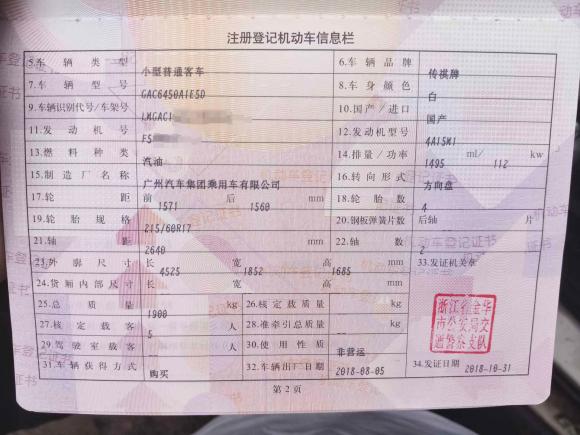 注册登记机动车信息栏
5.车辆类型 小型普通客车 6.车辆品牌 传祺牌
7.车辆型号 GAC6450A1E5D 8.车身颜色 白
9.车辆识别代号/车架号 LMGAC1 10.国产/进口 国产
11.发动机号 F5 12.发动机型号 4A15M1
13.燃料种类 汽油 14.排量/功率 1495 ml/ 112 kw
15.制造厂名称 广州汽车集团乘用车有限公司 16.转向形式 方向盘
17.轮距 前 1571 后 1560 mm 18.轮胎数 4
19.轮胎规格 215/60R17 20.钢板弹簧片数 后轴 片
21.轴距 2640 mm 22.轴数 2
23.外廓尺寸 长 4525 宽 1852 高 1685 mm 33.发证机关章
24.货厢内部尺寸 长 宽 高 mm
25.总质量 1900 kg 26.核定载质量 kg
27.核定载客 5 人 28.准牵引总质量 kg
29.驾驶室载客 人 30.使用性质 非营运
31.车辆获得方式 购买 32.车辆出厂日期 2018-08-05 34.发证日期 2018-10-31
浙江省金华
市公安局交
通警察支队
第2页